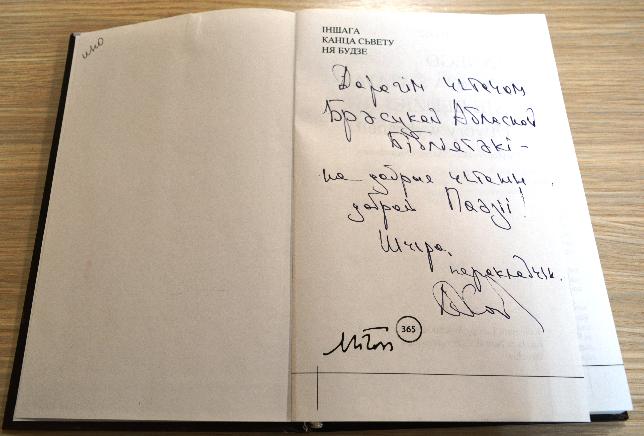 ІНШАГА
КАНЦА СЬВЕТУ
НЯ БУДЗЕ
Дарагім чытачом
Брэсцкай Абласной
Бібліятэкі –
на добрае чытаньне
добрай Паэзіі!
Шчыра,
перакладчік.
365
Miłosz